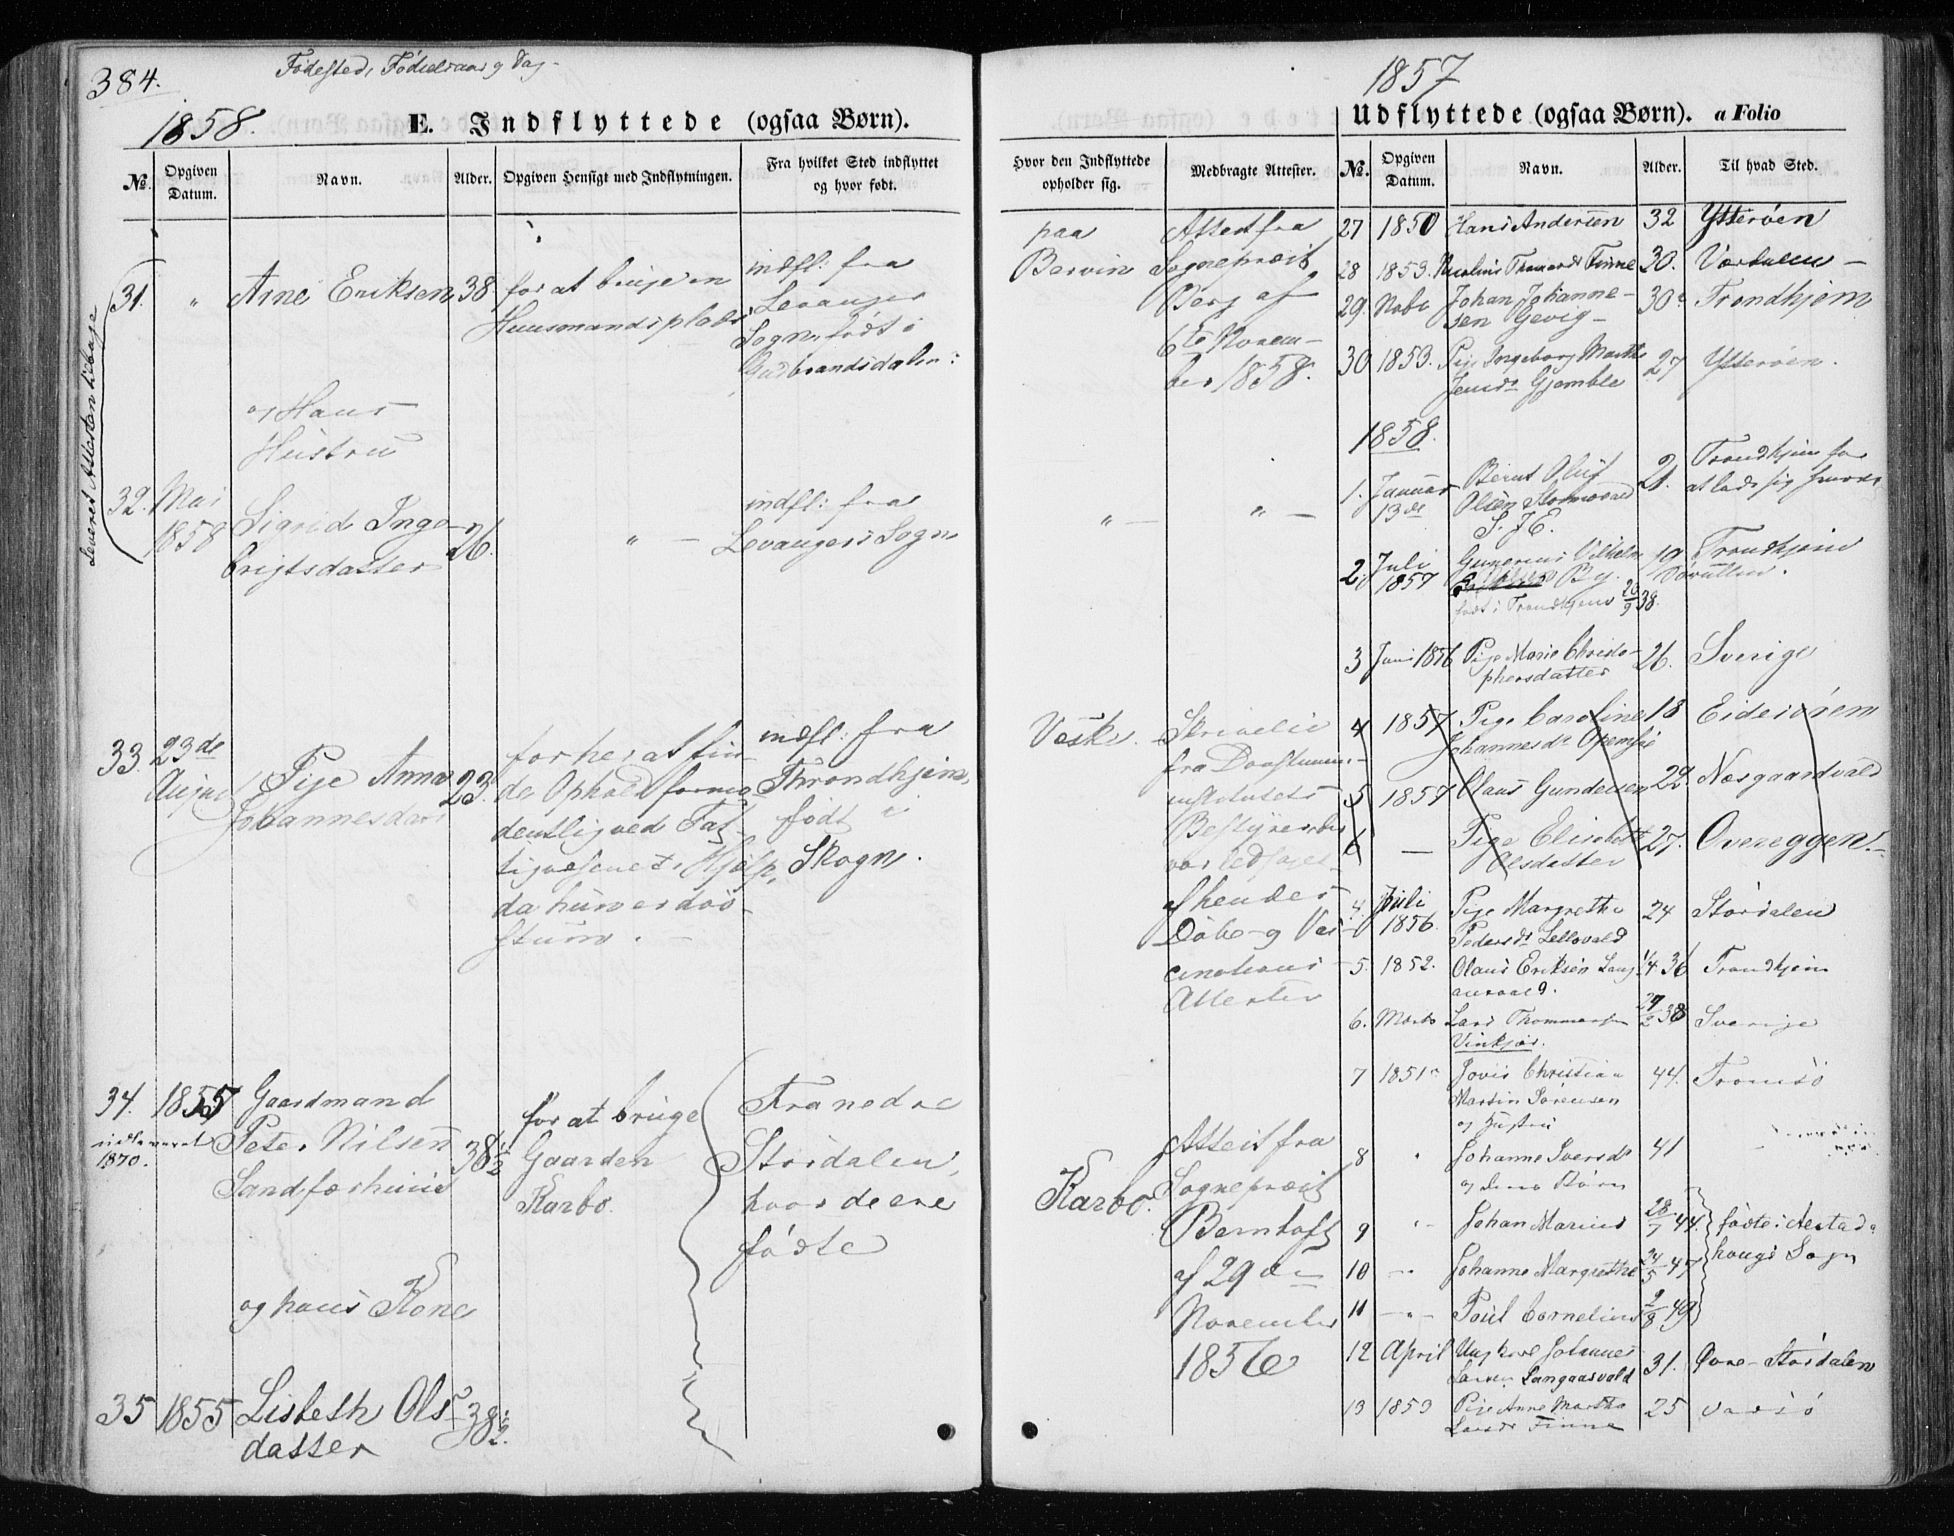 384.
Fødested, Fødselsaar og Dag
1858.
E. Indflyttede (ogsaa Børn).
No.
Opgiven Datum.
Navn.
Alder.
Opgiven Hensigt med Indflytningen.
Fra hvilket Sted indflyttet og hvor født.
Leveret Attesten tilbage
31. " Arne Eriksen 38 for at bruge en
Huusmandsplads
indfl: fra
Levanger
Sogn, født i
Gudbrandsdalen:
og Hans
Hustru
32. Mai
1858
Sigrid Inge-
brigtsdatter
26. " —
indfl: fra
Levangers Sogn
33. 23de
August
Pige Anna
Johannesdatr
23.
for her at fin-
de Ophold formo-
dentlig ved Fat-
tigvæsenets Hjelp,
da hun er døv-
stum. —
indfl: fra
Throndhjem,
født i
Skogn.
34. 1857
indleveret
1870.
Gaardmand
Peter Nilsen
Sandferhuus
38 1/2
for at bruge
Gaarden
Karbo.
Fra nedre
Stordalen,
hvor de ere
fødte
og hans Kone
35 1855 Lisbeth Ols-
datter
38 1/2.
1857
Udflyttede (ogsaa Børn). a Folio
Hvor den Indflyttede opholder sig.
Medbragte Attester.
No.
Opgiven Datum.
Navn.
Alder.
Til hvad Sted.
paa
Bervin
Attest fra
Sogneprest
Berg af
6te Novem-
ber 1858.
" — " —
Veske.
Skrivelse
fra Døvstumme-
institutets
Bestyrer
var ledsaget
af hendes
Døbe- og Vac-
cinations-
Attester
Karbo.
Attest fra
Sogneprest
Bernhoft
af 29de
November
1856
27 1850 Hans Andersen 32 Ytterøen
28 1853. Thomasdr Finne 30. Værdalen —
29. Johan Johanne-
sen Gevig — 30 Trondhjem
30 1853. Pige Ingeborg Martha
Jensdr Gjemble 27 Ytterøen.
1858.
1. Januar
13de
Bernt Oluf
Olsen
21. Trondhjem for
at lade sig
2, Juli
1857
Gunerius Vilhelm
By.
født i Trondhjem 20/9 38.
19 Trondhjem
3 Juni 1856 Pige Marie Christo-
phersdatter 26. Sverige
4 1857 Pige Caroline
Johannesdr 18
5 1857 Claus Gundersen 22. Næsgaardvald
6 — Pige Elisabeth
Olsdatter 27. Overeggen.
4. Juli
1856.
Pige Margrethe
Pedersdr 24 Stordalen
5. 1852. Olaus Eriksen 1/4 36 Trondhjem
6. Marts Lars Thommesen
27/2 38 Sverige
7 1851 Christian
Martin Sørensen
og Hustru
44. Tromsø
8 " Johanne Iversdr
og deres Børn
41
9 " Johan Marius 28/7 44.
10 — " Johanne Margrethe 24/5 47
11 — " — Poul Cornelius 2/8 49
fødte i Aestad-
hougs Sogn
12 April Ungkarl Johannes
Larsen Langaasvald 31. Øvre-Stordalen
13 1853 Pige Anne Martha
Larsdr Finne 25 Vadsø